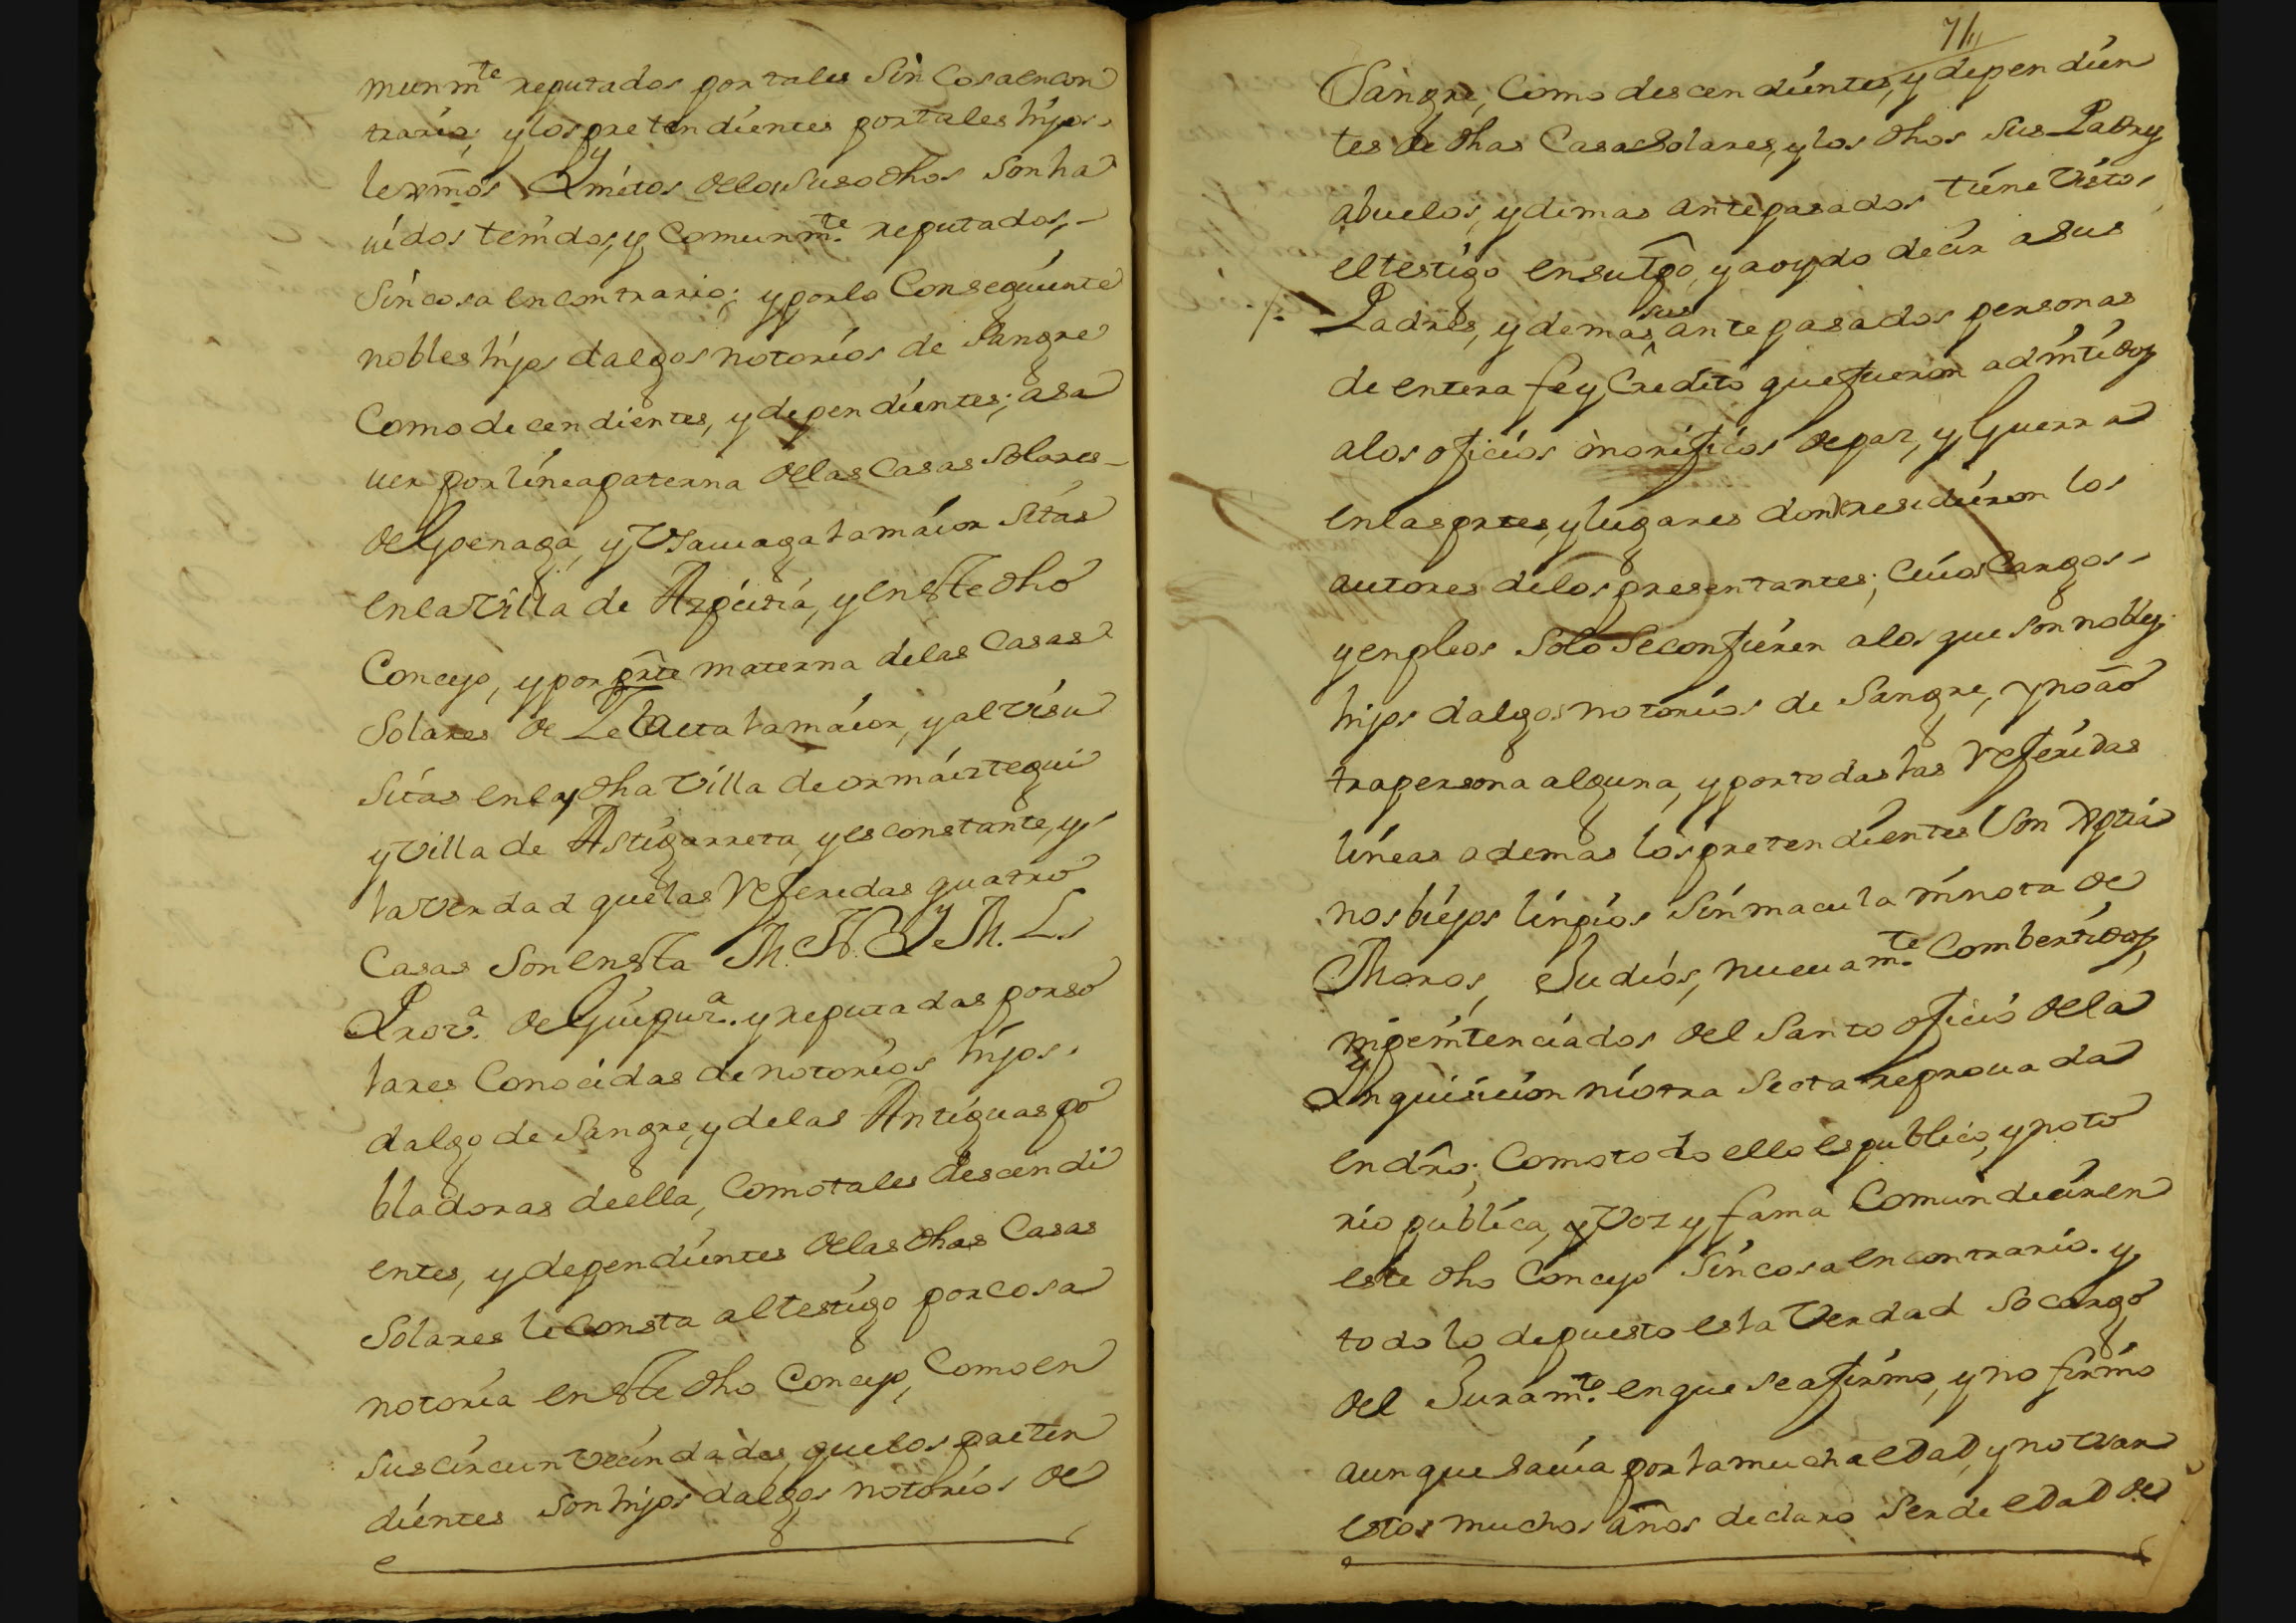 munmte reputados por tales Sin Cosa en con
trario; y los pretendientes por tales hijos
lexmos y nietos de los Susodhos Son ha
uidos tenidos, y Comunmte. reputados,-
Sin cosa en contrario; y por lo Conseguiente
nobles hijos dalgos notorios de Sangre
Como decendientes, y dependientes; asa
uer por linea paterna de las Casas Solares-
de Goenaga, y Vsauaga la maior Sitas
en la Villa de Azpeitia, y en este dho
Concejo, y por prte materna de las Casas
Solares de la maior, y al
Sitas en la dha Villa de ormaiztegui
y Villa de Astigarreta, y es constante, y
la verdad que las Referidas quatro
Casas Son en esta M. N. Y. M. L.
Prova. de Guipuza. y reputadas por so
lares Conocidas de notorios hijos
dalgo de Sangre, y de las Antiguas po
bladoras de ella, Como tales descendi
entes, y dependientes de las dhas Casas
Solares le Consta al testigo por cosa
notoria en este dho Concejo, Como en
Sus circunvecindades, que los preten
dientes Son hijos dalgos notorios de
71
Sangre, Como descendientes, y dependien
tes de dhas Casas Solares, y los dhos Sus Padres
abuelos, y demas antepasados tiene Visto
el testigo en su tpo, y a oydo decir a Sus
Padres, y demas sus antepasados personas
de entera fe y Credito que fueron admitidos
a los oficios onorificos de paz, y Guerra
en las prtes, y lugares donde residieron los
autores de los presentantes; Cuios Cargos-
y enpleos Solo Se confieren a los que Son nobles
hijos dalgos notorios de Sangre, y no a o
tra persona alguna, y por todas las Referidas
lineas ademas los pretendientes Son Xptia
nos biejos linpios Sin macula ni nota de
Moros, Judios, nueuamte. Combertidos,
ni penitenciados del Santo oficio de la
Ynquisicion ni otra Secta reprouada
en dro; Como todo ello es publico, y noto
rio publica, y Voz y fama Comun decir en
este dho Concejo Sin cosa en contrario. y
todo lo depuesto es la Verdad So cargo
del Juramto. en que se afirmo, y no firmo
aunque sauia por la mucha edad, y no Vsar
estos muchos años declaro Ser de edad de